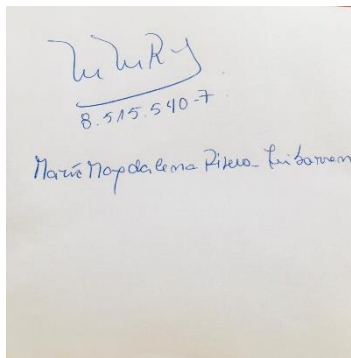 8.515.540-7
María Magdalena Rivero Iribarren